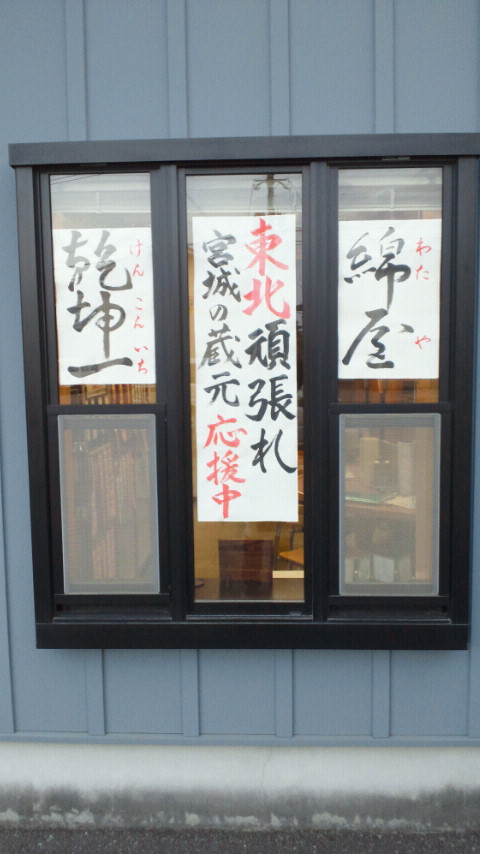 綿屋
わた や
東北 頑張れ
宮城の蔵元 応援中
乾坤一
けん こん いち